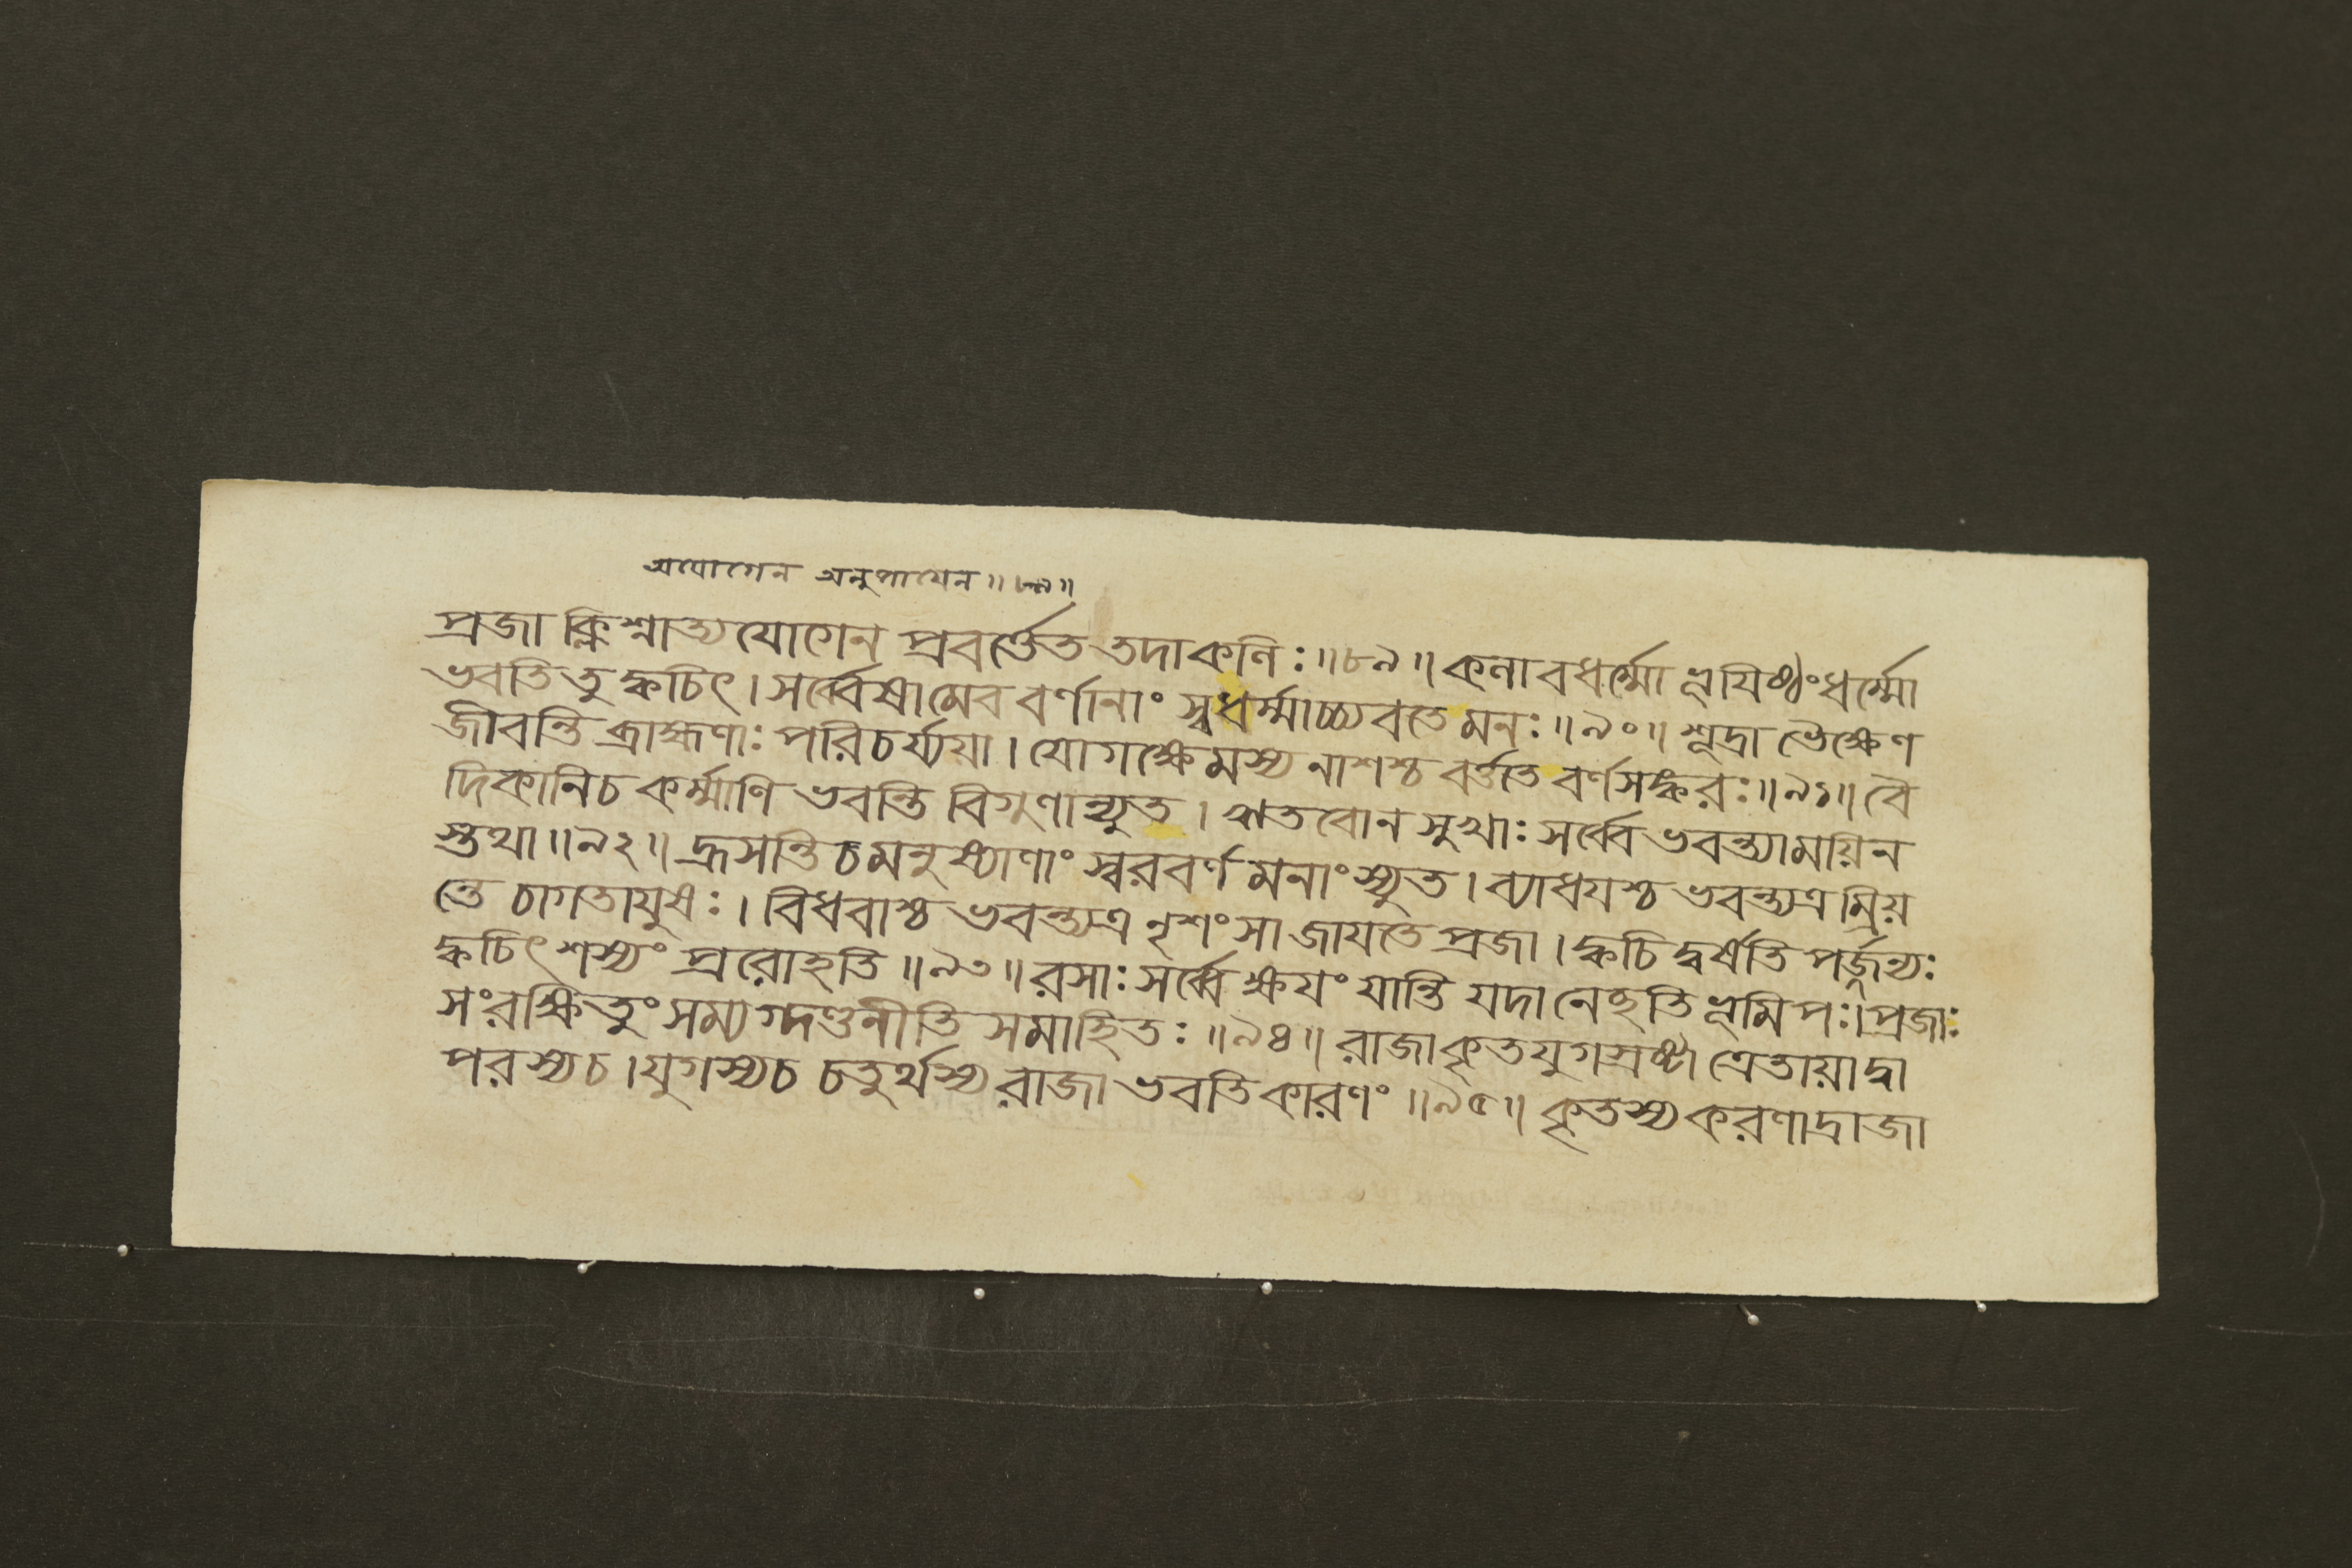 অযোগেন অনুপাযেন॥৮৯॥
প্রজা ক্লিশ্নাত্যযোগেন প্রবর্ত্তেত তদাকলিঃ॥৮৯॥কলাবধর্ম্মো ভূযিষ্ঠংধর্ম্মো
ভবতি তু ক্বচিৎ।সর্ব্বেষামেব বর্ণানাং স্বধর্ম্মাচ্চ্যবতে মনঃ॥৯০॥শূদ্রা ভৈক্ষেণ
জীবন্তি ব্রাহ্মণাঃ পরিচর্য্যয়া।যোগক্ষেমস্য নাশশ্চ বর্ত্ততে বর্ণসঙ্করঃ॥৯১॥বৈ
দিকানিচ কর্ম্মাণি ভবন্তি বিগুণান্যুত।ঋতবোন সুখাঃ সর্ব্বে ভবন্ত্যাময়িন
স্তথা॥৯২॥হ্রসন্তি চ মনুষ্যাণাং স্বরবর্ণ মনাংস্যুত।ব্যাধযশ্চ ভবন্ত্যত্র ম্রিয়
ন্তে চাগতাযুষঃ।বিধবাশ্চ ভবন্ত্যত্র নৃশংসা জাযতে প্রজা।ক্বচি দ্বর্ষতি পর্জ্জন্যঃ
ক্বচিৎ শস্যং প্ররোহতি॥৯৩॥রসাঃ সর্ব্বে ক্ষযং যান্তি যদা নেহতি ভূমিপঃ।প্রজাঃ
সংরক্ষিতুং সম্যগ্দণ্ডনীতি সমাহিতঃ॥৯৪॥রাজাকৃতযুগস্রষ্টা ত্রেতায়াদ্বা
পরস্যচ।যুগস্যচ চতুর্থস্য রাজা ভবতি কারণং॥৯৫॥কৃতস্য করণাদ্রাজা